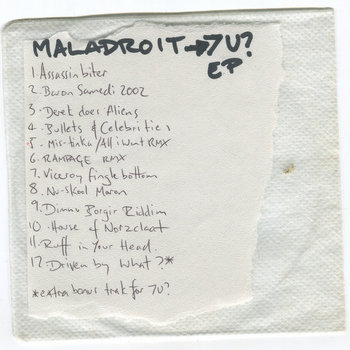 MALADROIT → 7U?
EP
1. Assassin biter
2. Baron Samedi 2002
3. Derek does Aliens
4. Bullets & Celebrities
5. Mis-tinka/All i want RMX
6. RAMPAGE RMX
7. Viceroy fingle bottom
8. Nu-Skool Moron
9. Dimmu Borgir Riddim
10. House of Norzclaat
11. Ruff in Your Head.
12. Driven by What?*
*extra bonus trak for 7U?